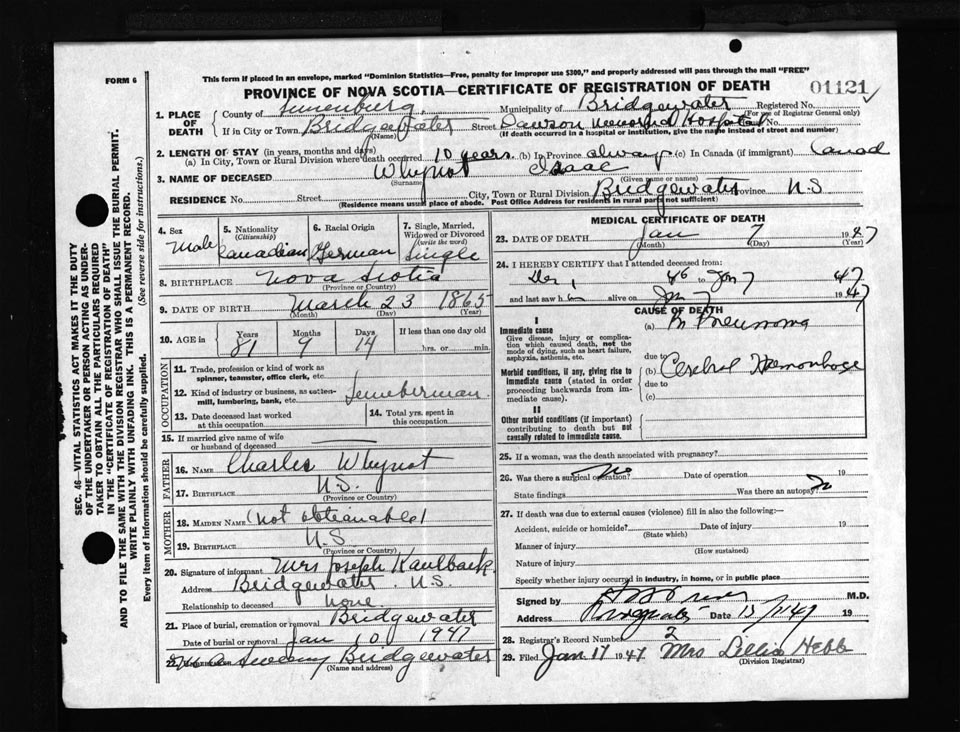 FORM 6
This form if placed in an envelope, marked "Dominion Statistics—Free, penalty for improper use $300," and properly addressed will pass through the mail "FREE"
PROVINCE OF NOVA SCOTIA—CERTIFICATE OF REGISTRATION OF DEATH
01121
1. PLACE OF DEATH
County of Lunenburg Municipality of Bridgewater Registered No.
(For use of Registrar General only)
If in City or Town Bridgewater Street Dawson Memorial Hospital No.
(Name) (If death occurred in a hospital or institution, give the name instead of street and number)
2. LENGTH OF STAY (in years, months and days)
(a) In City, Town or Rural Division where death occurred 10 years. (b) In Province always (c) In Canada (if immigrant) Canad
3. NAME OF DECEASED Whynot Isaac
(Surname) (Given name or names)
RESIDENCE No. Street City, Town or Rural Division Bridgewater Province N.S
(Residence means usual place of abode. Post Office Address for residents in rural parts not sufficient)
4. Sex
Male
5. Nationality
(Citizenship)
Canadian
6. Racial Origin
German
7. Single, Married, Widowed or Divorced
(write the word)
Single
8. BIRTHPLACE Nova Scotia
(Province or Country)
9. DATE OF BIRTH March 23 1865
(Month) (Day) (Year)
10. AGE in
Years Months Days If less than one day old
81 9 14 hrs. or min.
OCCUPATION
11. Trade, profession or kind of work as spinner, teamster, office clerk, etc.
12. Kind of industry or business, as cotton-mill, lumbering, bank, etc.
13. Date deceased last worked at this occupation
14. Total yrs. spent in this occupation
15. If married give name of wife or husband of deceased
FATHER
16. NAME Charles Whynot
17. BIRTHPLACE N.S.
(Province or Country)
MOTHER
18. MAIDEN NAME (not obtainable)
19. BIRTHPLACE N.S
(Province or Country)
20. Signature of informant Mrs Joseph Kaulback
Address Bridgewater. N.S.
Relationship to deceased none
21. Place of burial, cremation or removal Bridgewater
Date of burial or removal Jan 10 1947
22. Bridgewater
(Name and address)
MEDICAL CERTIFICATE OF DEATH
23. DATE OF DEATH Jan 7 1947
(Month) (Day) (Year)
24. I HEREBY CERTIFY that I attended deceased from:
46 to Jan 7 47
and last saw h alive on Jan 7 1947
CAUSE OF DEATH
I
Immediate cause
Give disease, injury or complication which caused death, not the mode of dying, such as heart failure, asphyxia, asthenia, etc.
(a) Pneumonia
due to
Morbid conditions, if any, giving rise to immediate cause (stated in order proceeding backwards from immediate cause).
(b) Cerebral Hemorrhage
due to
(c)
II
Other morbid conditions (if important) contributing to death but not causally related to immediate cause.
25. If a woman, was the death associated with pregnancy?
26. Was there a surgical operation? No Date of operation 19
State findings Was there an autopsy? No
27. If death was due to external causes (violence) fill in also the following:—
Accident, suicide or homicide? Date of injury 19
(State which)
Manner of injury
(How sustained)
Nature of injury
Specify whether injury occurred in industry, in home, or in public place
Signed by M.D.
Address Bridgewater Date 13/1/47 19
28. Registrar's Record Number 2
29. Filed Jan. 17 1947 Mrs Lillia Hebb
(Division Registrar)
SEC. 46—VITAL STATISTICS ACT MAKES IT THE DUTY
OF THE UNDERTAKER OR PERSON ACTING AS UNDER-
TAKER TO OBTAIN ALL THE PARTICULARS REQUIRED
IN THE "CERTIFICATE OF REGISTRATION OF DEATH"
AND TO FILE THE SAME WITH THE DIVISION REGISTRAR WHO SHALL ISSUE THE BURIAL PERMIT.
WRITE PLAINLY WITH UNFADING INK. THIS IS A PERMANENT RECORD.
Every item of information should be carefully supplied. (See reverse side for instructions.)